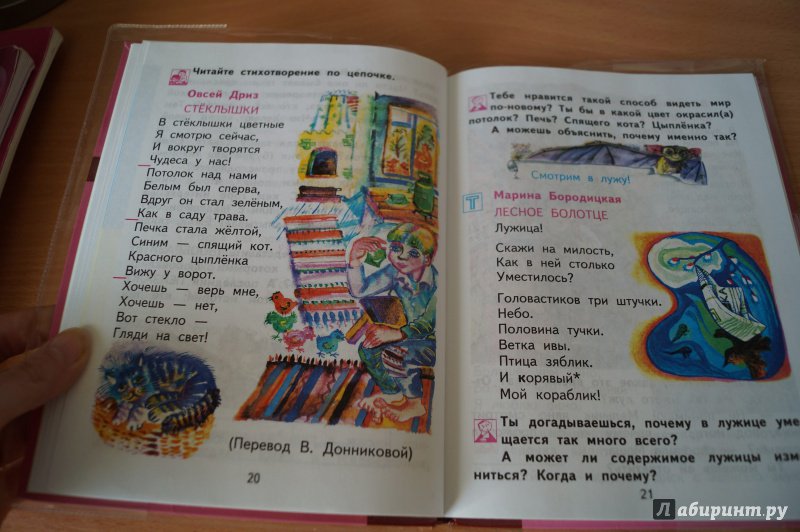 Читайте стихотворение по цепочке.
Овсей Дриз
СТЁКЛЫШКИ
В стёклышки цветные
Я смотрю сейчас,
И вокруг творятся
Чудеса у нас!
Потолок над нами
Белым был сперва,
Вдруг он стал зелёным,
Как в саду трава.
Печка стала жёлтой,
Синим — спящий кот.
Красного цыплёнка
Вижу у ворот.
Хочешь — верь мне,
Хочешь — нет,
Вот стекло —
Гляди на свет!
(Перевод В. Донниковой)
20
Тебе нравится такой способ видеть мир
по-новому? Ты бы в какой цвет окрасил(а)
потолок? Печь? Спящего кота? Цыплёнка?
А можешь объяснить, почему именно так?
Смотрим в лужу!
Т
Марина Бородицкая
ЛЕСНОЕ БОЛОТЦЕ
Лужица!
Скажи на милость,
Как в ней столько
Уместилось?
Головастиков три штучки.
Небо.
Половина тучки.
Ветка ивы.
Птица зяблик.
И корявый*
Мой кораблик!
Ты догадываешься, почему в лужице уме
щается так много всего?
А может ли содержимое лужицы изм
ниться? Когда и почему?
21
Лабиринт.ру